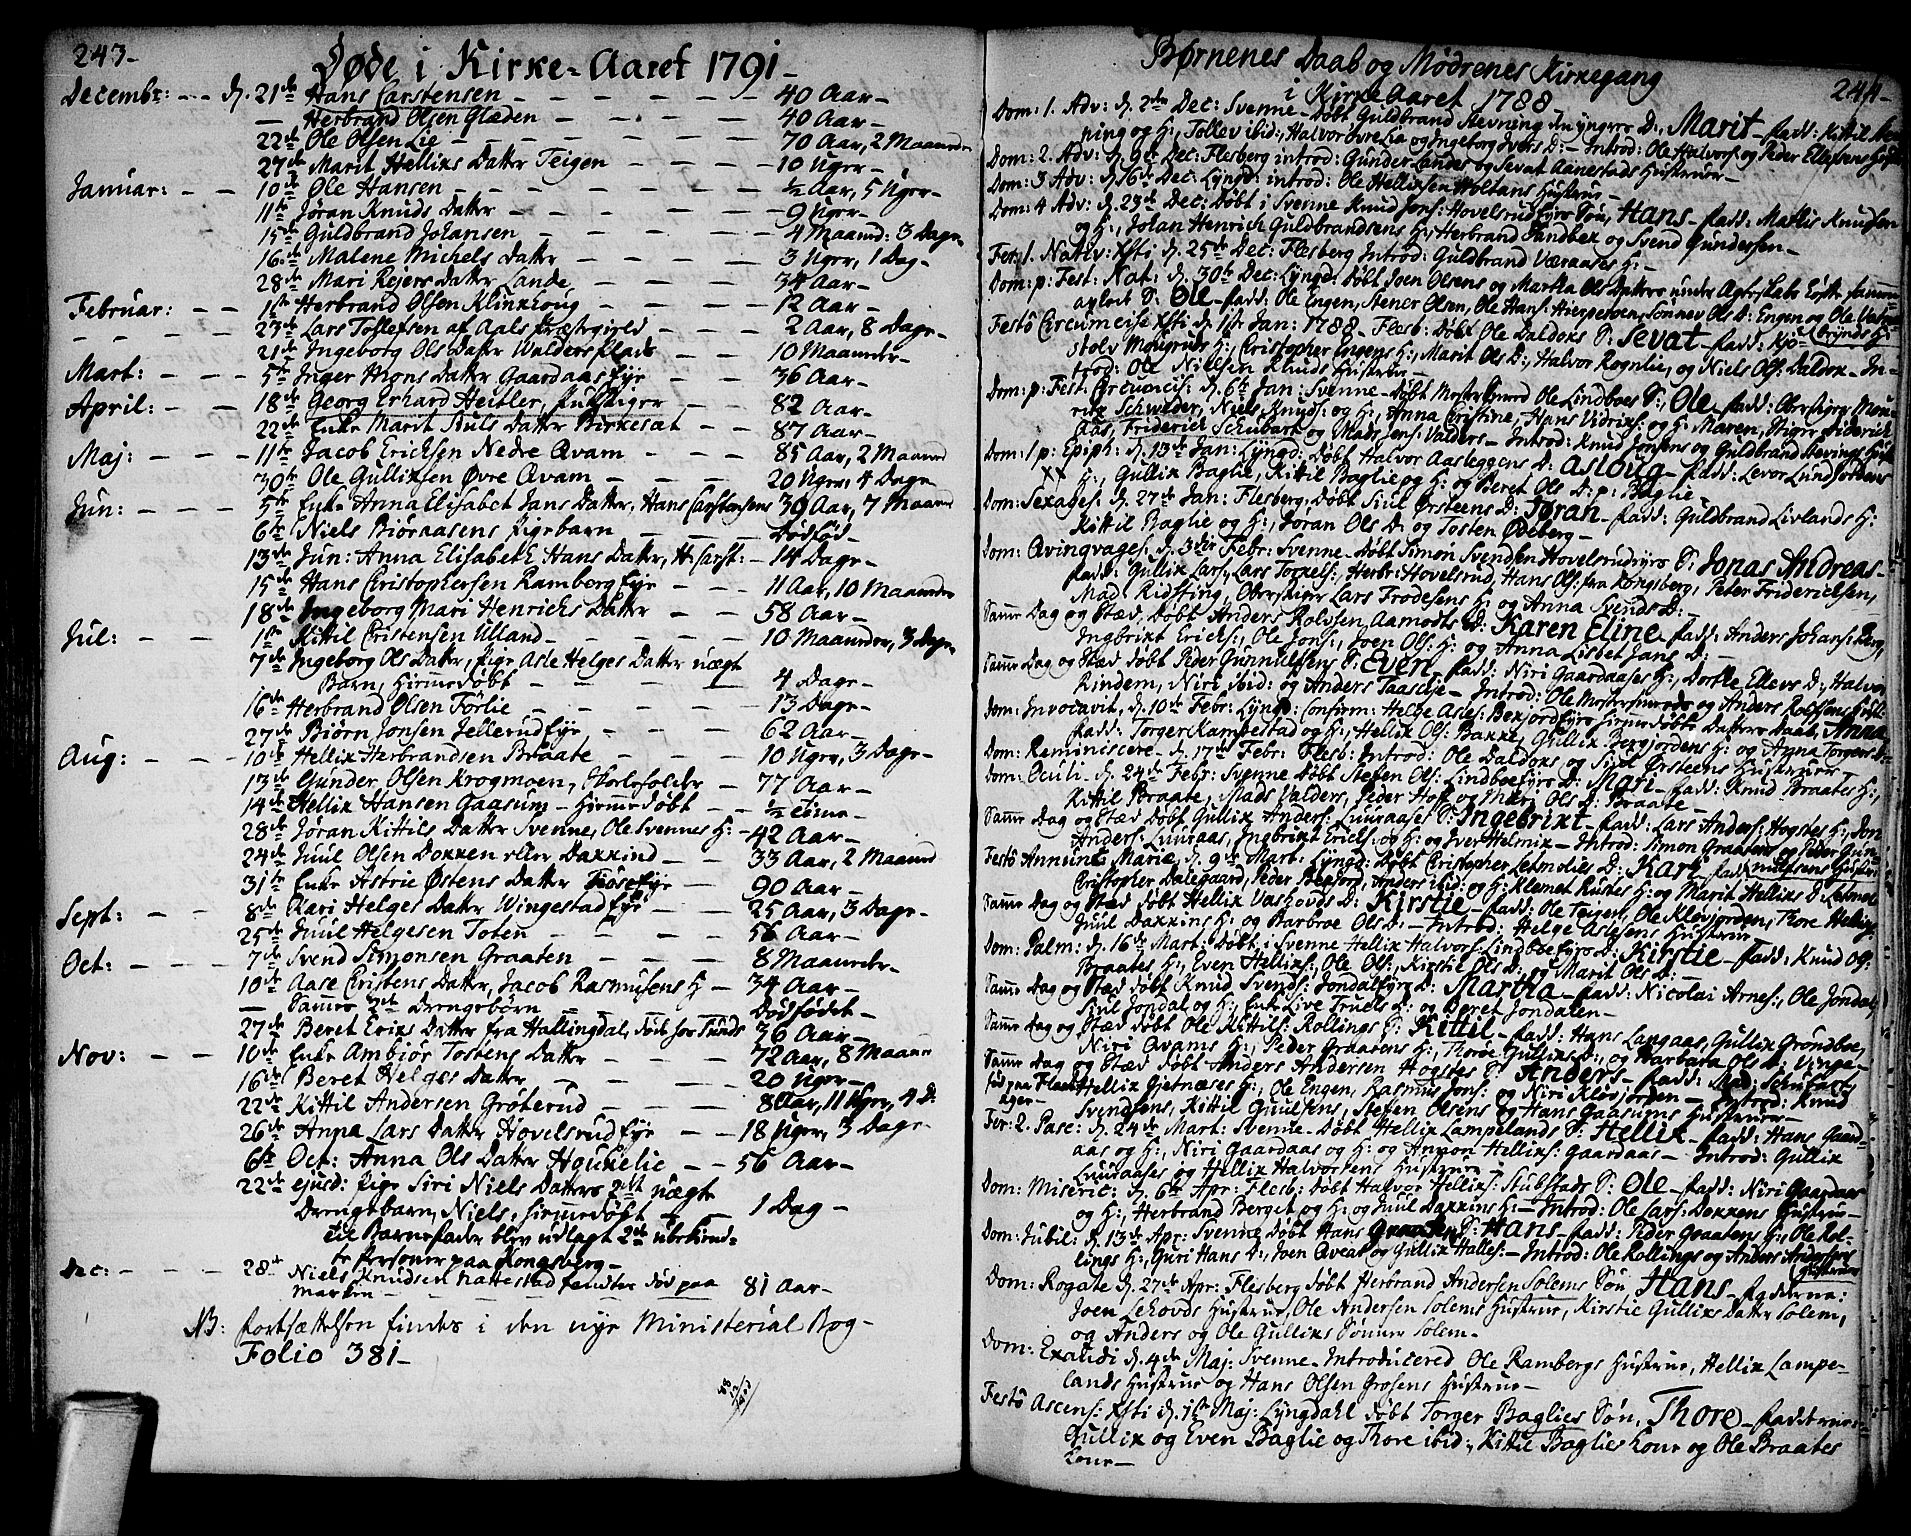 243-
Døde i Kirke-Aaret 1791-
Decembr: - - d. 21de Hans Carstensen - - - 40 Aar-
— Herbrand Olsen Glæden - - - 40 Aar-
22de Ole Olsen Lie - - - 70 Aar, 2 Maaneder
27de Marit Hellixs Datter Teigen - - 10 Uger-
Januar: - - 10de Ole Hansen - - - ½ Aar, 5 Uger-
11te Jøran Knuds Datter - - - 9 Uger-
15de Guldbrand Johansen - - - 4 Maaned: 3 Dage-
16de Malene Michels Datter - - - 3 Uger, 1 Dag-
28de Mari Rejers Datter Lande, - - - 34 Aar-
Februar: - - 1te Herbrand Olsen Klinkhoug - - - 12 Aar-
23de Lars Tollefsen af Aals Præstegield - - - 2 Aar, 8 Dage-
21de Ingeborg Ols Datter Walders Plads - - 10 Maaneder-
Mart: - - - 5te Inger Mons Datter Gaardaas Eye - - 36 Aar-
April: - - - 18de Georg Erhard Heitler, - - 82 Aar-
22de Enke Marit Siuls Datter Birkesæt - - 87 Aar-
Maj: - - - 11te Jacob Ericksen Nedre Qvam - - - 85 Aar, 2 Maaned
30te Ole Gullixsen Øvre Qvam - - - 20 Uger, 4 Dage
Jun: - - - 5te Enke Anna Elisabet Jans Datter, Hans Carstensens 39 Aar, 7 Maaned
6te Niels Biøraasens Pigebarn - - - Dødfød-
13de Jun: Anna Elisabeth Hans Datter, H: Carst: - 14 Dage-
15de Hans Cristophersen Ramberg Eye - - 11 Aar, 10 Maaneder
18de Ingeborg Mari Henrichs Datter - - 58 Aar-
Jul: - - 1te Kittil Cristensen Ulland - - - 10 Maaneder, 3 Dage-
7de Ingeborg Ols Datter, Pige Asle Helges Datter uægt
Barn, hiemmedøbt - - - 4 Dage-
16de Herbrand Olsen Førlie - - - 13 Dage-
27de Biørn Jonsen Jellerud Eye - - - 62 Aar-
Aug: - - - 10de Hellix Herbrandsen Braate - - - 10 Uger, 3 Dage-
13de Gunder Olsen Krogmoen, Skoleholder - 77 Aar-
14de Hellix Hansen Gaasum - Hiemmedøbt - - ½ Time-
28de Jøran Kittils Datter Svenne, Ole Svennes H: - 42 Aar-
24de Juul Olsen Dokken eller Daxkind - - 33 Aar, 2 Maaned
31te Enke Astrie Østens Datter Tiøse Eye - 90 Aar-
Sept: - - 8de Kari Helges Datter Wingestad Eye - - 25 Aar, 3 Dage-
25de Juul Helgesen Toten - - - 56 Aar-
Oct: - - - 7de Svend Simonsen Graaten - - - 8 Maaneder-
10de Aase Cristens Datter, Jacob Rasmusens H: - 34 Aar-
— Samme 2de Drengebørn - - - Dødfødet-
27de Beret Erixs Datter fra Hallingdal, død hos Tunds 36 Aar-
Nov: - - 10de Enke Ambiør Tostens Datter - - - 72 Aar, 8 Maaned
16de Beret Helges Datter - - - 20 Uger-
22de Kittil Andersen Grøterud - - - 8 Aar, 11 Uger, 4 D:
26de Anna Lars Datter Hovelsrud Eye - - 18 Uger, 3 Dage-
6te Oct: Anna Ols Datter Houkelie - - 56 Aar-
22de ejusd: Pige Siri Niels Datters 2det uægte
Drengebarn, Niels, hiemmedøbt - - 1 Dag-
til Barnefader blev udlagt 2de ubekiend-
te Personer paa Kongsberg-
Dec: - - - 28de Niels Knudsen Nattestad fandtes død paa 81 Aar-
Marken - - -
NB: Fortsættelsen findes i den nye Ministerial Bog-
Folio 381-
Børnenes Daab og Mødrenes Kirkegang
i Kirke Aaret 1788-
244-
Dom: 1. Adv: d. 2den Dec: Svenne - Døbt Guldbrand Stevning den yngres D:, Marit - Fadd: Kittil
ning og H:, Tollev ibid:, Halvor Øvre Lia og Ingeborg Ivers D: - Introd: Ole Halvors: og Peder Ellefsens
Dom: 2. Adv: d. 9de Dec: Flesberg introd: Gunder Landes og Sevat Aanestads Hustruer-
Dom: 3 Adv: d. 16de Dec: Lyngd: introd: Ole Hellixsen Holtans Hustrue-
Dom: 4 Adv: d. 23de Dec: Døbt i Svenne Knud Jons: Hovelsrud Eyes Søn, Hans - Fadd: Mathis Knudsen
og H:, Johan Henrich Guldbrandsens H:, Herbrand Sandbek og Svend Gundersen-
Fer: 1. Nativ: Xsti d. 25de Dec: Flesberg Introd: Guldbrand Væraases H:-
Dom: p: Fest. Nat: d. 30te Dec: Lyngd: Døbt Joen Olsens og Martha Ols Datters under Ægteskabs Løfte sammen-
avlede S: Ole - Fadd: Ole Engen, Stener Olsen, Ole Hans: , Sønnev Ols D: Engen og Ole
Festô Circumcise Xsti d. 1ste Jan: 1788 - Flesb: Døbt Ole Daldoks S: Sevat - Fadd:
stolv Moegrues H:, Cristopher Engens H:, Marit Ols D:, Halvor Rognlie, og Niels Ols: Daldok - In-
trod: Ole Nielsen Rluuds Hustrue-
Dom: p: Fest. Circumcis: d. 6te Jan: Svenne - Døbt Ole Lindboes S:, Ole - Fadd: Oberstiger
Schwader, Niels Knuds: og H:, Anna Cristine, Hans Vidrixs: og H: Maren, Stiger Diderich
Aas, Friderich Schubart og Mads Jens: Valders - Introd: Knud Jonsens og Guldbrand Stevnings
Dom: 1 p: Epiph: d. 13de Jan: Lyngd: Døbt Halvor Aasleggens D: Asloug - Fadd: Levor Lundsjordens
H:, Gullix Baglie, Kittil Baglie og H: og Beret Ols D: p: Baglie-
Dom: Sexages: d. 27de Jan: Flesberg, Døbt Siul Ørsteens D: Jøran - Fadd: Guldbrand Livlands H:
Kittil Baglie og H:, Jøran Ols D: og Tosten Ødeberg-
Dom: Qvinqvages: d. 3die Febr: Svenne - Døbt Simon Svendsen Hovelsrud Eyes S: Jonas Andreas-
Fadd: Gullix Lars:, Lars Torkels:, Herbr: Hovelsrud, Hans Ols: fra Kongsberg, Peter Friderichsen,
Mad: Ridsting, Oberstiger Lars Frodesens H: og Anna Svends D:-
Samme Dag og Stæd, Døbt Anders Rolvsen Aamodts D: Karen Eline - Fadd: Anders Johans: Berg,
Ingbrikt Erichs:, Ole Jons:, Joen Ols: H: og Anna Lisbet Jans D:-
Samme Dag og Stæd Døbt Peder Gunnulfsens S: Even - Fadd: Niri Gaardaases H:, Dorthe Ellevs D:, Halvor
Rindem, Niri ibid: og Anders Taaselse - Introd: Ole og Anders Rolfsens
Dom: Invocavit, d. 10de Febr: Lyngd: Confirm: Helge Asles: Bekjord Eyes hiemmedøbte Datters Daab, Anna
Fadd: Torger Kampestad og H:, Hellix Ols: Bakke, Gullix Bekjordens H: og Anna Torgers D:
Dom: Reminiscere - d. 17de Febr: Flesb: Introd: Ole Daldoks og Siul Ørsteens Hustruer-
Dom: Oculi - d. 24de Febr: Svenne Døbt Stefen Ols: Lindboe Eyes D: Mari - Fadd: Knud Braates H:,
Kittil Braate, Mads Valders, Peder Hoff og Mari Ols D: Braate-
Samme Dag og Stæd Døbt Gullix Anders: Luuraases S: Ingebrikt - Fadd: Lars Anders: Hogstes H:, Jon
Anders: Luuraas, Ingbrikt Erichs: og H: og Iver Helmix - Introd: Simon Graatens og Peder Gun-
nulfsens Hustruer
Festô Annunc: Mariæ d. 9de Mart: Lyngd: Døbt Cristopher Letmolies D: Kari - Fadd:
Cristopher Dalegaard, Peder Bekjord, Anders ibid: og H: Klemet Rustes H: og Marit Hellixs D: Letmol
Samme Dag og Stæd Døbt Hellix Vashovds D: Kirstie - Fadd: Ole Teigen, Ole Kløvjorden, Thore
Juul Daxkins H: og Barbroe Ols D: - Introd: Helge Aslesens Hustrue-
Dom: Palm: d. 16de Mart: Døbt i Svenne Hellix Halvors: Lindboe Eyes D: Kirstie - Fadd: Knud Ols:
Braates H:, Even Hellixs:, Ole Ols:, Kirstie Ols D: og Marit Ols D:-
Samme Dag og Stæd Døbt Knud Svends: Jondal Eyes D: Martha - Fadd: Nicolai Arnes:, Ole Jondal,
Siul Jondal og H:, Enke Live Truels D: og Beret Jondalen-
Samme Dag og Stæd Døbt Ole Kittils: Rollings S: Kittil - Fadd: Hans Langaas, Gullix Grøndboe,
Niri Qvams H:, Peder Graatens H:, Thorøe Gullixs D:, og Barbara Ols D: Vinge-
Samme Dag og Stæd Døbt Anders Andersen Hogstes S: Anders - Fadd: Mad: Schubart,
Hellix Gjetnæses H:, Ole Engen, Rasmus Jons: og Niri Kløvjorden - Introd: Knud
Svendsens, Kittil Guulsens, Stefen Olsens og Hans Gaasums Hustruer-
Fer: 2. Pasc: d. 24de Mart: Svenne - Døbt Hellix Lampelands S: Hellix - Fadd: Hans Gaard-
aas og H:, Niri Gaardaas og H: og Hellixs: Gaardaas - Introd: Gullix
Luuraases og Hellix Halvorsens Hustruer-
Dom: Miseric: d. 6te Apr: Flesb: Døbt Halvor Hellixs: Stubstads S: Ole - Fadd: Niri Gaardaas
og H:, Herbrand Berget og H: og Juul Daxkins H: - Introd: Ole Lars: Dokkens Hustrue-
Dom: Jubil: d. 13de Apr: Svenne Døbt Hans S: Hans - Fadd: Peder Graatens H:, Ole Rol-
lings H:, Guri Hans D:, Joen Qveat og Gullix Halles: - Introd: Ole Rollings og Anders Andersens
Hustruer
Dom: Rogate d. 27de Apr: Flesberg Døbt Herbrand Andersen Solems Søn, Hans - Fadderne:
Joen Lehovds Hustrue, Ole Andersen Solems Hustrue, Kirstie Gullixs Datter Solem,
og Anders og Ole Gullixs Sønner Solem-
Dom: Exaudi d. 4de Maj: Svenne - Introducered Ole Rambergs Hustrue, Hellix Lampe-
lands Hustrue og Hans Olsen Grosens Hustrue-
Festô Ascens: Xsti d. 1ste Maj: Lyngdahl Døbt Torger Baglies Søn, Thore - Fadderne:
Gullix og Even Baglie og Thore ibid:, Kittil Baglies Kone og Ole Braates
Kone-